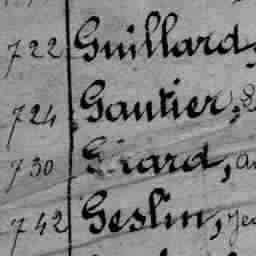 722 Guillard,
724 Gautier,
730 Girard,
742 Geslin,